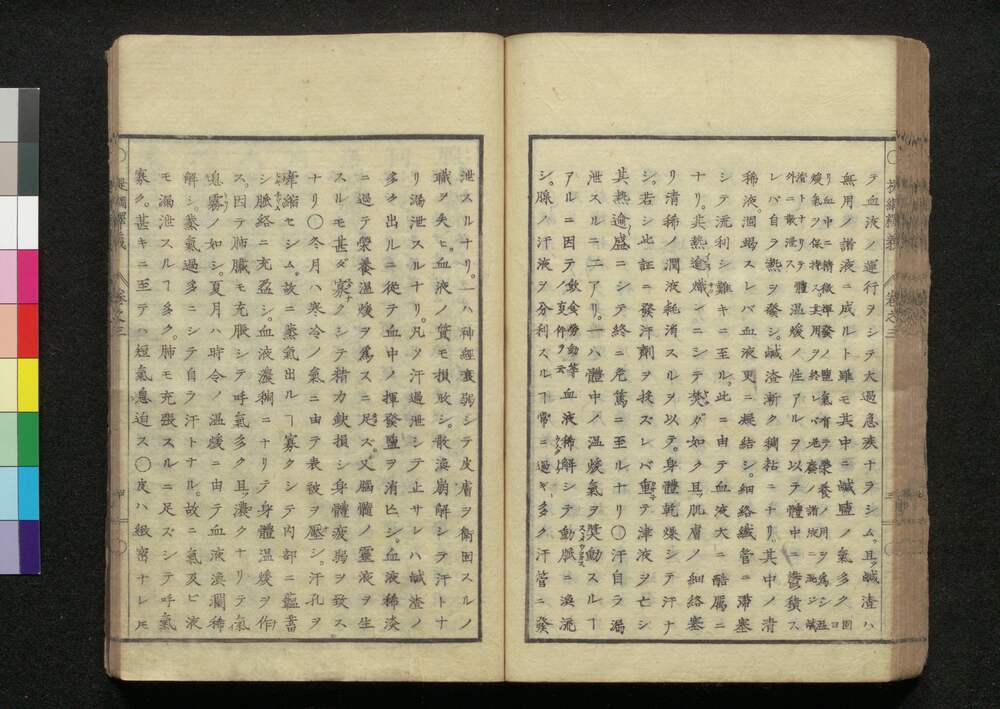 テ血液ノ運行ヲシテ太過急疾ナラシム。且鹹渣ハ
無用ノ諸液ニ成ルト雖モ其中ニ鹹鹽ノ氣多ク
稀液涸竭スレバ血液更ニ凝結シ。細絡纎管ニ滞塞
シテ流利シ難キニ至ル。此ニ由テ血液大ニ酷厲ニ
ナリ。其熱逾熾イニシテ焚ガ如ク且肌膚ノ細絡塞
リ清稀ノ潤液耗消スルヲ以テ。身體乾燥シテ汗ナ
シ。若シ此証ニ發汗劑ヲ投ズレバ重テ津液ヲ亡シ
其熱逾盛ニシテ終ニ危篤ニ至ルナリ〇汗自ラ漏
泄スルニ二アリ。一ハ體中ノ温煖氣ヲ奬動スルヿ
アルニ因テ飲食労動等ノ変作ヲ云血液稀解シテ動脈ニ湊流
シ。脈ノ汗液ヲ分利スルヿ常ニ過ギ多ク汗管ニ發
泄スルナリ。一ハ神經衰弱シテ皮膚ヲ衛固スルノ
職ヲ失ヒ。血液ノ質モ損敗シ。散渙崩解シテ汗トナ
リ漏泄スルナリ。凡ソ汗過泄シテ止サレハ鹹渣ノ
多ク出ルニ從テ血中ノ揮發鹽ヲ消亡シ。血液稀淡
ニ過テ榮養温煖ヲ爲スニ足ズ。又腦髓ノ靈液ヲ生
スルモ甚ダ寡ノシテ精力缺損シ身體疲弱ヲ致ス
ナリ〇冬月ハ寒冷ノ氣ニ由テ表被ヲ壓シ。汗孔ヲ
牽縮セシム。故ニ蒸氣出ルヿ寡クシテ内部ニ蘊蓄
シ脈絡ニ充盈シ。血液濃稠ニナリテ身體温煖ヲ作
ス。因テ肺臓モ充脹シテ呼氣多ク且ツ濃クナリテ氣
息霧ノ如シ。夏月ハ時令ノ温煖ニ由テ血液渙瀾稀
解シ。蒸氣過多ニシテ自ラ汗トナル。故ニ氣及ビ液
モ漏泄スルヿ多ク。肺モ充張スルニ足ズシテ呼氣
寡ク。甚キニ至テハ短氣急迫ス〇皮ハ緻密ナレ𪜈